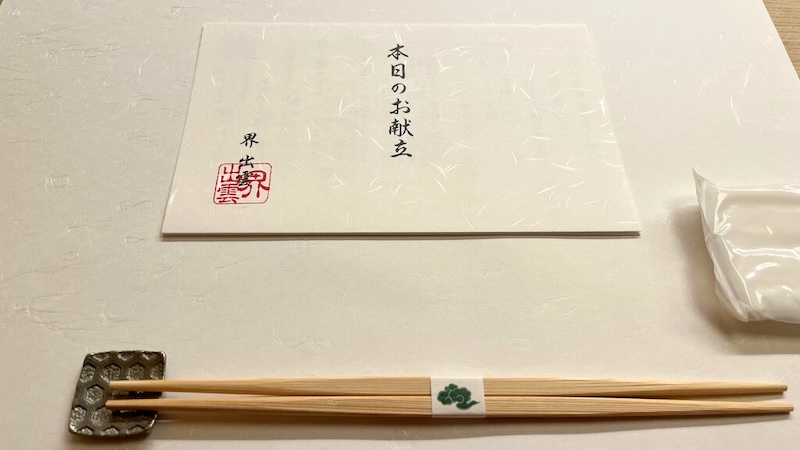 本日のお献立
界 出雲
界出雲